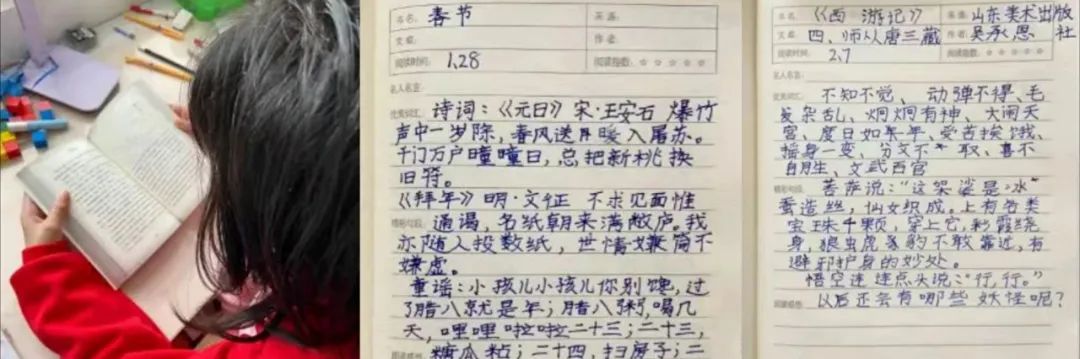 书名: 春节
来源:
文章:
作者:
阅读时间: 1.28
阅读指数: ☆☆☆☆☆
名人名言:
优美词汇: 诗词:《元日》宋·王安石 爆竹
声中一岁除,春风送暖入屠苏。
千门万户曈曈日,总把新桃换
旧符。
《拜年》明·文征 不求见面惟
精彩句段: 通谒,名纸朝来满敝庐。我
亦随人投数纸,世情嫌简不
嫌虚。
童谣:小孩儿小孩儿你别馋,过
了腊八就是年;腊八粥,喝几
天,哩哩啦啦二十三;二十三,
糖瓜粘;二十四,扫房子;二
书名: 《西游记》
来源: 山东美术出版社
文章: 四、师从唐三藏
作者: 吴承恩
阅读时间: 2.7
阅读指数: ☆☆☆☆☆
名人名言:
优美词汇: 不知不觉、动弹不得、毛
发杂乱、炯炯有神、大闹天
宫、度日如年、受苦挨饿、
摇身一变、分文不取、喜不
自胜、文武百官
精彩句段: 菩萨说:“这架裟是冰
蚕造丝,仙女织成。上有各类
宝珠千颗,穿上它,彩霞绕
身,狼虫虎豹不敢靠近,有
避邪护身的妙处。
悟空连连点头说:“行,行。”
阅读感悟: 以后还会有哪些妖怪呢?